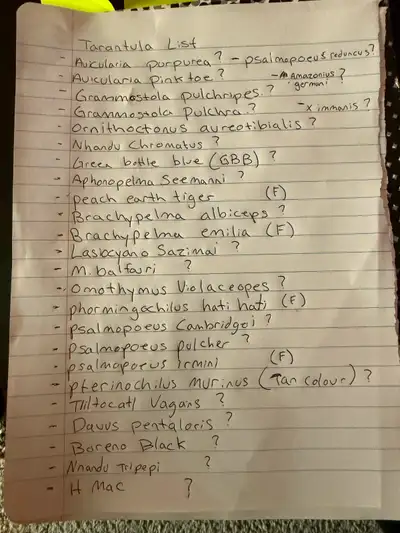 Tarantula List
- Avicularia purpurea? - psalmopoeus reduncus?
- Avicularia pinktoe? - Amazonius germani?
- Grammostola pulchripes?
- Grammostola Pulchra? - X immanis?
- Ornithoctonus aureotibialis?
- Nhandu Chromatus?
- Green bottle blue (GBB)?
- Aphonopelma Seemanni?
- peach earth tiger (F)
- Brachypelma albiceps?
- Brachypelma emilia (F)
- Lasiocyano Sazimai?
- M. balfouri ?
- Omothymus Violaceopes?
- phormingochilus hati hati (F)
- psalmopoeus Cambridgei?
- psalmopoeus pulcher?
- psalmopoeus irmini (F)
- pterinochilus Murinus (Tan colour)?
- Tliltocatl Vagans ?
- Davus pentaloris?
- Boreno Black ?
- Nhandu Tripepi ?
- H Mac ?